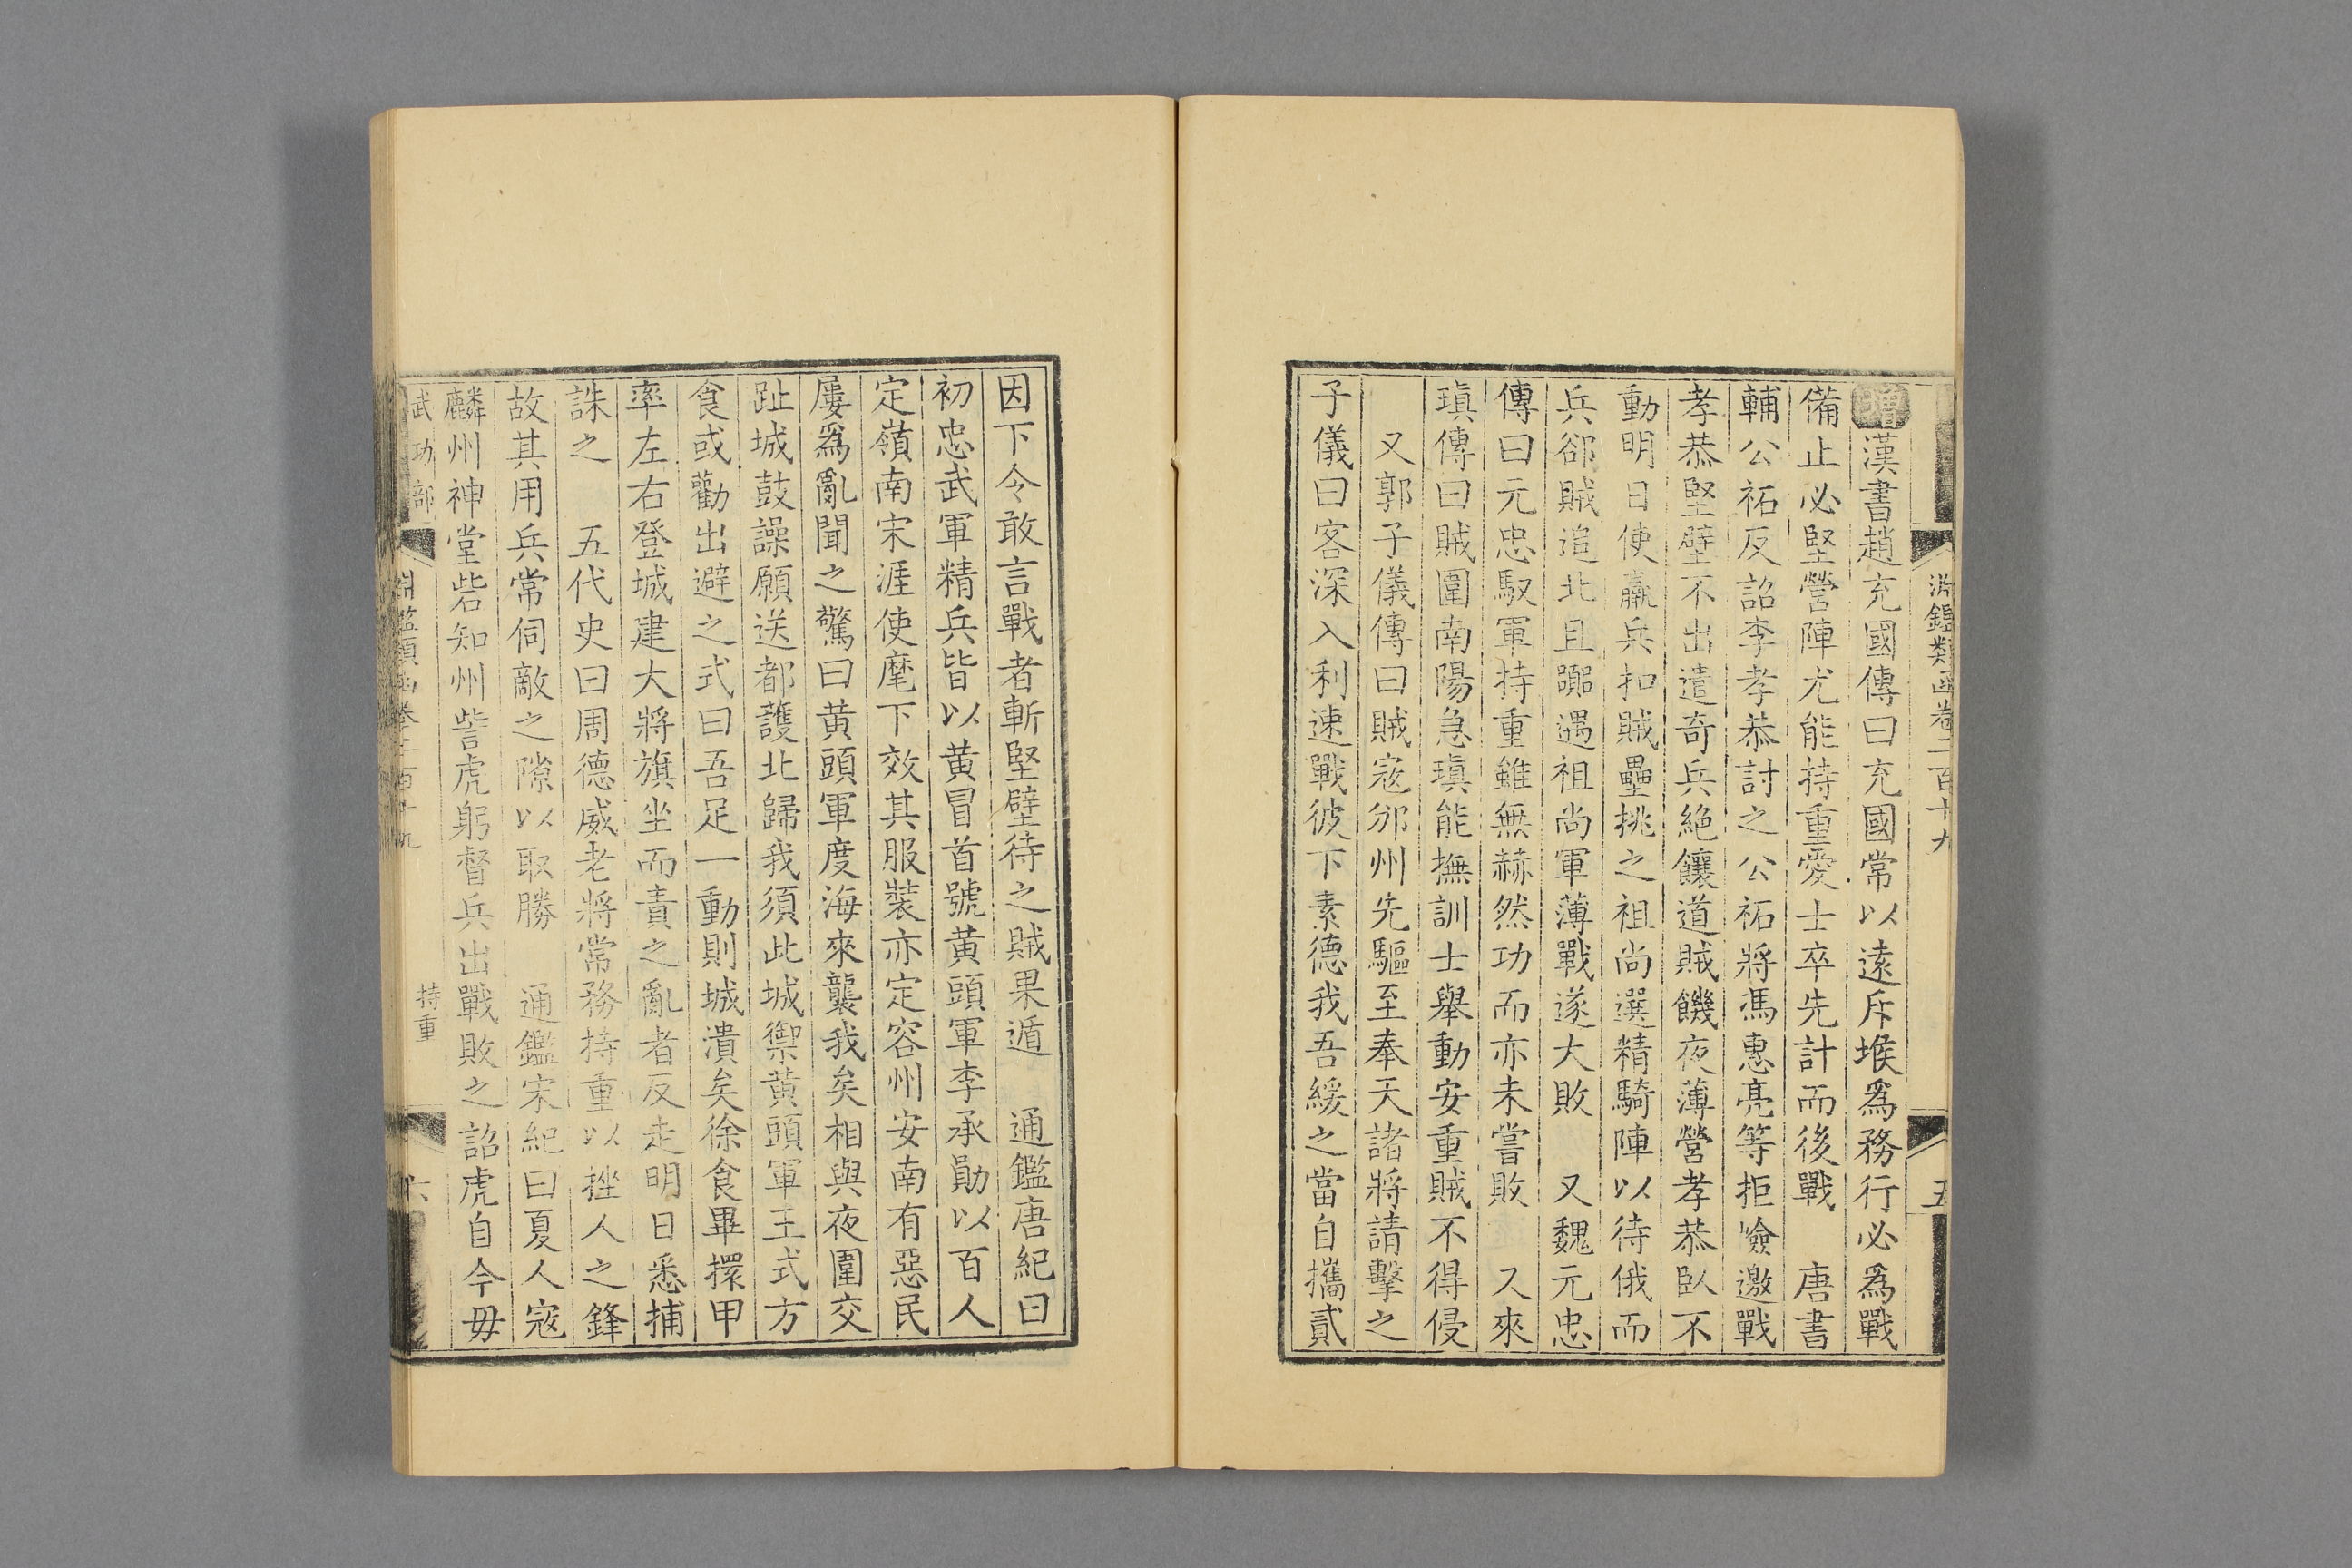 淵鑑類函卷二百十九
五
增漢書趙充國傳曰充國常以遠斥堠爲務行必爲戰
備止必堅營陣尤能持重愛士卒先計而後戰　唐書
輔公祏反詔李孝恭討之公祏將馮惠亮等拒嶮邀戰
孝恭堅壁不出遣奇兵絕饟道賊饑夜薄營孝恭臥不
動明日使羸兵扣賊壘挑之祖尚選精騎陣以待俄而
兵郤賊追北且躑遇祖尚軍薄戰遂大敗　又魏元忠
傳曰元忠馭軍持重雖無赫然功而亦未嘗敗　又來
瑱傳曰賊圍南陽急瑱能撫訓士舉動安重賊不得侵
　又郭子儀傳曰賊寇邠州先驅至奉天諸將請擊之
子儀曰客深入利速戰彼下素德我吾緩之當自攜貳
因下令敢言戰者斬堅壁待之賊果遁　通鑑唐紀曰
初忠武軍精兵皆以黃冒首號黃頭軍李承勛以百人
定嶺南宋涯使麾下效其服裝亦定容州安南有惡民
屢爲亂聞之驚曰黃頭軍度海來襲我矣相與夜圍交
趾城鼓譟願送都護北歸我須此城禦黃頭軍王式方
食或勸出避之式曰吾足一動則城潰矣徐食畢擐甲
率左右登城建大將旗坐而責之亂者反走明日悉捕
誅之　五代史曰周德威老將常務持重以挫人之鋒
故其用兵常伺敵之隙以取勝　通鑑宋紀曰夏人寇
麟州神堂砦知州訾虎躬督兵出戰敗之詔虎自今毋
武功部
淵鑑類函卷二百十九
持重
六